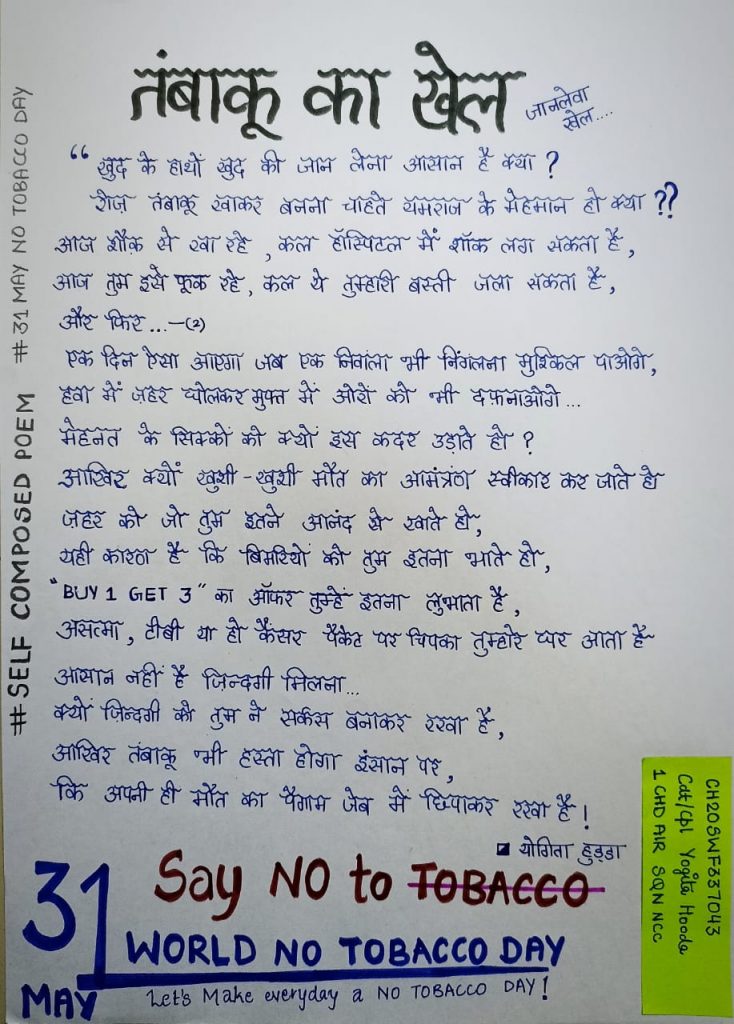 तंबाकू का खेल
जानलेवा
खेल....
“ खुद के हाथों खुद की जान लेना आसान है क्या ?
रोज़ तंबाकू खाकर बनना चाहते यमराज के मेहमान हो क्या ??
आज शौक़ से खा रहे , कल हॉस्पिटल में शॉक लग सकता है ,
आज तुम इसे फूक रहे , कल ये तुम्हारी बस्ती जला सकता है ,
और फिर ...—(2)
एक दिन ऐसा आएगा जब एक निवाला भी निंगलना मुश्किल पाओगे ,
हवा में ज़हर घोलकर मुफ्त में ओरों को भी दफ़नाओगे ...
मेहनत के सिक्कों को क्यों इस कदर उड़ाते हो ?
आखिर क्यों खुशी-खुशी मौत का आमंत्रण स्वीकार कर जाते हो
ज़हर को जो तुम इतने आनंद से खाते हो ,
यही कारण है कि बिमारियों को तुम इतना भाते हो ,
"BUY 1 GET 3" का ऑफर तुम्हें इतना लुभाता है ,
अस्तमा , टीबी या हो कैंसर पैकेट पर चिपका तुम्हारे घर आता है
आसान नहीं है ज़िन्दगी मिलना ...
क्यों ज़िन्दगी को तुम ने सर्कस बनाकर रखा है ,
आखिर तंबाकू भी हस्ता होगा इंसान पर ,
कि अपनी ही मौत का पैगाम जेब में छिपाकर रखा है !
योगिता हुड्डा
Say NO to TOBACCO
31
MAY
WORLD NO TOBACCO DAY
Let's Make everyday a NO TOBACCO DAY!
#SELF COMPOSED POEM #31 MAY NO TOBACCO DAY
CH20SWF337043
Cdt/Cpl Yogita Hooda
1 CHD AIR SQN NCC